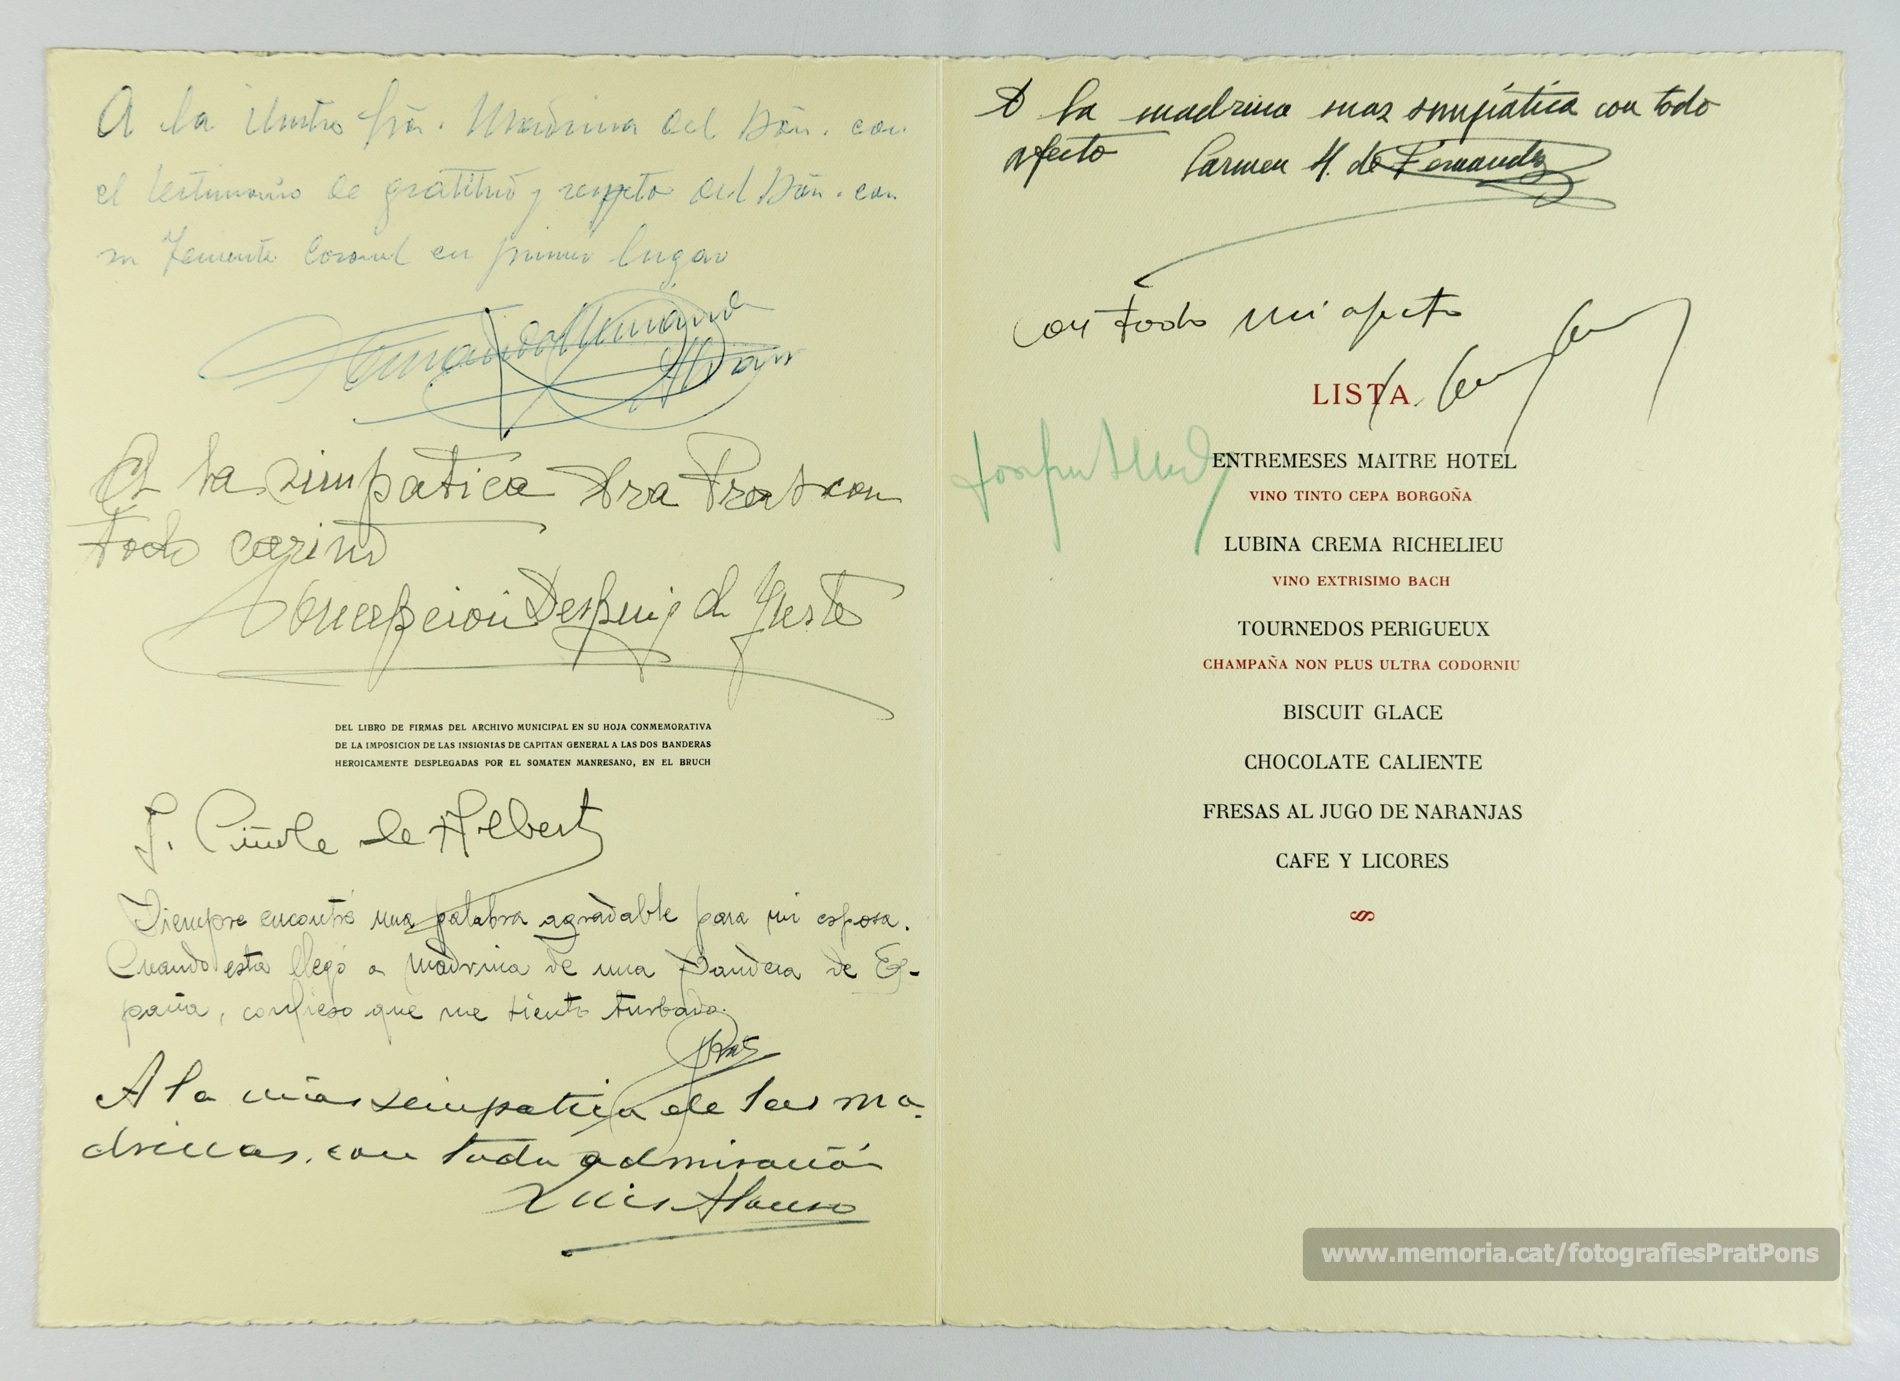 A la Ilustre Sra. Madrina del Bón. con
el testimonio de gratitud y respeto del Bón. con
su Teniente Coronel en primer lugar
A la simpatica Sra Prat con
todo cariño
Concepcion Despuig de Yuste
DEL LIBRO DE FIRMAS DEL ARCHIVO MUNICIPAL EN SU HOJA CONMEMORATIVA
DE LA IMPOSICION DE LAS INSIGNIAS DE CAPITAN GENERAL A LAS DOS BANDERAS
HEROICAMENTE DESPLEGADAS POR EL SOMATEN MANRESANO, EN EL BRUCH
J. Piñole de Albert
Siempre encontré una palabra agradable para mi esposa.
Cuando esta llegó a madrina de una bandera de Es-
paña, confieso que me siento turbado.
Prat
A la más simpatica de las ma-
drinas, con toda admiración
Luis Alonso
A la madrina mas simpática con todo
afecto Carmen H. de Fernandez
Con todo mi afecto
LISTA
ENTREMESES MAITRE HOTEL
VINO TINTO CEPA BORGOÑA
LUBINA CREMA RICHELIEU
VINO EXTRISIMO BACH
TOURNEDOS PERIGUEUX
CHAMPAÑA NON PLUS ULTRA CODORNIU
BISCUIT GLACE
CHOCOLATE CALIENTE
FRESAS AL JUGO DE NARANJAS
CAFE Y LICORES
www.memoria.cat/fotografiesPratPons